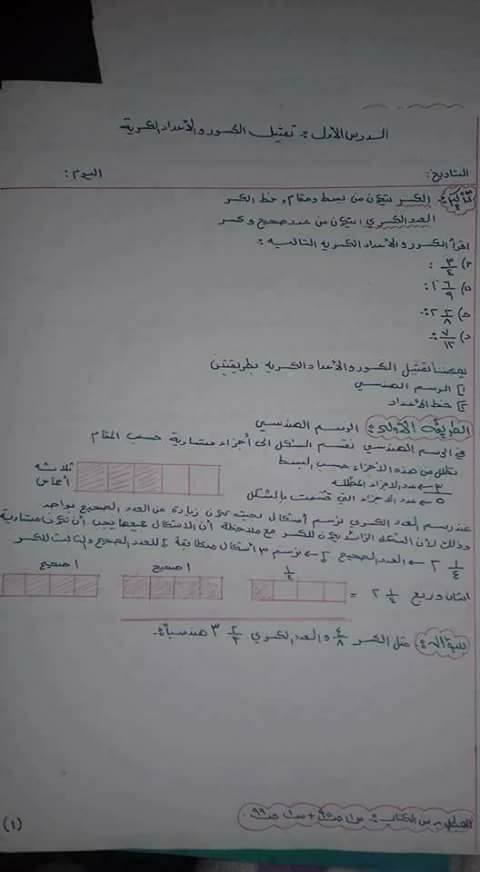 الدرس الأول: تمثيل الكسور والأعداد الكسرية
التاريخ: اليوم:
الكسر يتكون من بسط ومقام وخط الكسر
العدد الكسري: يتكون من عدد صحيح وكسر
اقرأ الكسور والأعداد الكسرية التالية:
٣/٤ :
١ ٦/٩ :
٢/٨ ٢ :
د) ٧/١٢ :
يمكننا تمثيل الكسور والأعداد الكسرية بطريقتين
١] الرسم الهندسي
٢] خط الأعداد
الطريقة الأولى: الرسم الهندسي
في الرسم الهندسي نقسم الشكل إلى أجزاء متساوية حسب المقام
نظلل من هذه الأجزاء حسب البسط
٣ ← عدد الأجزاء المظللة
٥ ← عدد الأجزاء التي قسمت بالشكل
ثلاثة أخماس
عند رسم العدد الكسري نرسم أشكال بحيث تكون زيادة عن العدد الصحيح بواحد
وذلك لأن الشكل الزائد يكون للكسر مع ملاحظة أن الأشكال جميعها يجب أن تكون متساوية
٢ ١/٤ ← العدد الصحيح ٢ ← نرسم ٣ أشكال متطابقة ٢ للعدد الصحيح والثالث للكسر
١/٤ ١ صحيح ١ صحيح
اثنان وربع ٢ ١/٤ =
سؤال: مثل الكسر ٤/٨ والعدد الكسري ٣ ٢/٣ هندسياً.
(١)